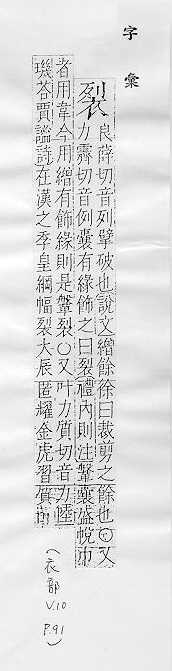 字彙
裂
良薛切音列擘破也說文繒餘徐曰裁剪之餘也○又
力霽切音例囊有緣飾之曰裂禮內則注鞶囊盛帨巾
者用韋今用繒有飾緣則是鞶裂○又叶力質切音力陸
璣荅賈謐詩在漢之季皇綱幅裂大辰匿耀金虎習質
(衣部
V.10
P.91)